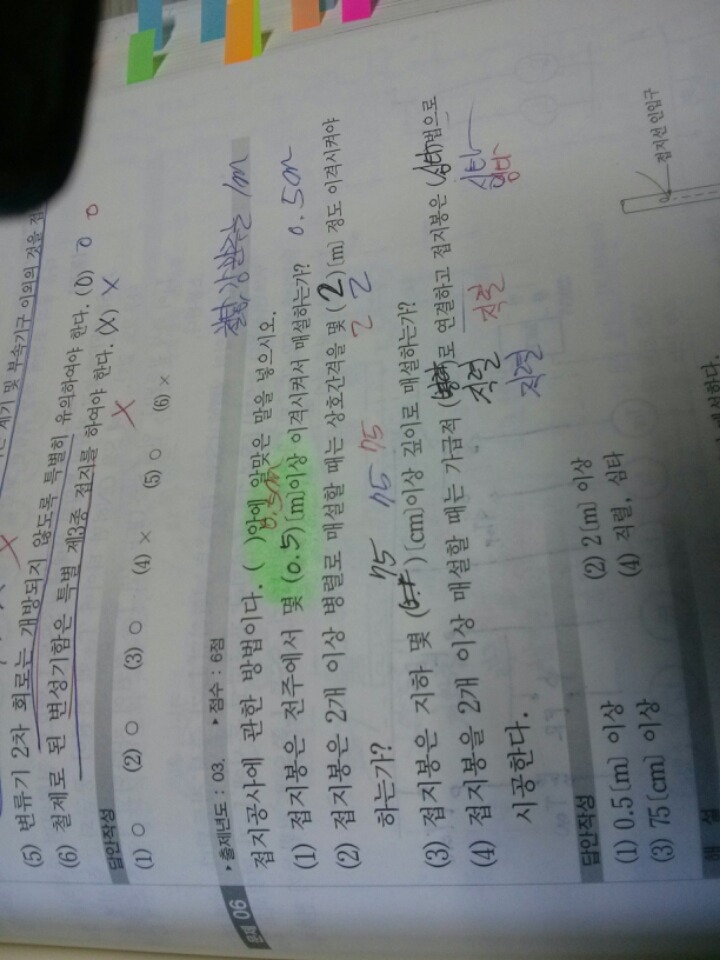 (5) 변류기 2차 회로는 개방되지 않도록 특별히 유의하여야 한다. (O) O O
(6) 철제로 된 변성기함은 특별 제3종 접지를 하여야 한다. (X) X
X
답안작성
(1) ○ (2) ○ (3) ○ (4) × (5) ○ (6) ×
문제 06 ▸출제년도 : 03. ▸점수 : 6점
1m
접지공사에 관한 방법이다. ( )안에 알맞은 말을 넣으시오.
0.5m
(1) 접지봉은 전주에서 몇 (0.5)[m]이상 이격시켜서 매설하는가? 0.5m
(2) 접지봉은 2개 이상 병렬로 매설할 때는 상호간격을 몇 (2)[m] 정도 이격시켜야
하는가? 2 2
75 75 75
(3) 접지봉은 지하 몇 ( )[cm]이상 깊이로 매설하는가?
(4) 접지봉을 2개 이상 매설할 때는 가급적 ( )로 연결하고 접지봉은 (심타)법으로
직렬 직렬 심타
시공한다. 직렬 심타
답안작성
(1) 0.5[m] 이상 (2) 2[m] 이상
(3) 75[cm] 이상 (4) 직렬, 심타
해 설
접지선 인입구
매설한다.